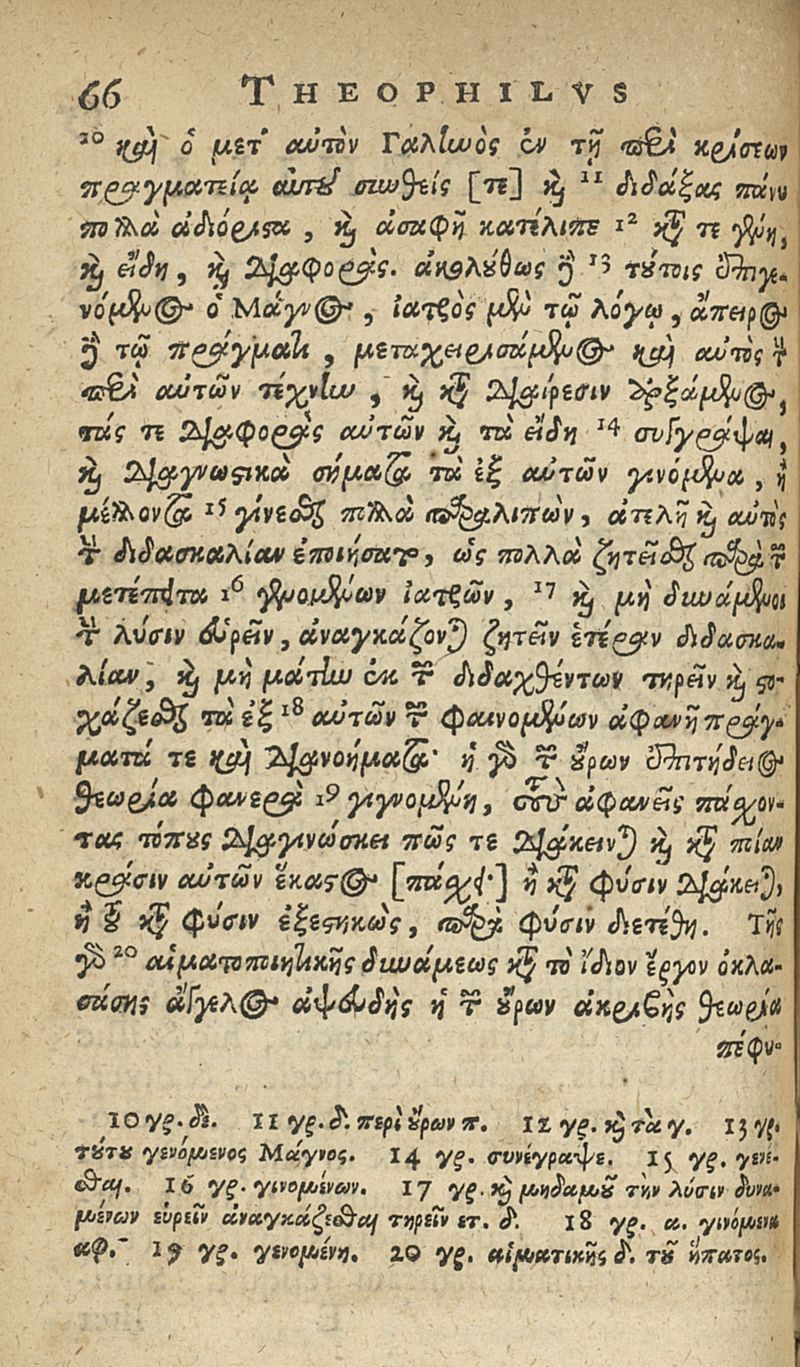 66 THEOPHILVS
10 καὶ ὁ μετ' αὐτὸν Γαλίωὸς ἐν τῇ περὶ κρίσεων
πραγματείᾳ αὐτοῦ συωθείς [τε] καὶ 11 διδάξας πάνυ
πολλὰ ἀδιόριστα, καὶ ἀσαφῆ κατέλιπε 12 κατά τε γένη,
καὶ εἴδη, καὶ διαφοράς. ἀκολούθως δὲ 13 τούτοις ἐπιγε-
νόμενος ὁ Μάγνος, ἰατρὸς μὲν τῷ λόγῳ, ἄπειρος
δὲ τῷ πράγματι, μεταχειρισάμενος καὶ αὐτὸς τὴν
περὶ αὐτῶν τέχνην, καὶ κατὰ διαίρεσιν ἀρξάμενος,
τάς τε διαφορὰς αὐτῶν καὶ τὰ εἴδη 14 συγγράψαι,
καὶ διαγνωστικὰ σήματα τὰ ἐξ αὐτῶν γινόμενα, ἢ
μέλλοντα 15 γίνεσθαι πολλὰ παραλιπὼν, ἀτελῆ καὶ αὐτὸς
τὴν διδασκαλίαν ἐποιήσατο, ὡς πολλὰ ζητεῖσθαι παρὰ τῶν
μετέπειτα 16 γενομένων ἰατρῶν, 17 καὶ μὴ δυνάμενοι
τὴν λύσιν εὑρεῖν, ἀναγκάζονται ζητεῖν ἑτέραν διδασκα-
λίαν, καὶ μὴ μάτην ἐκ τῶν διδαχθέντων τηρεῖν καὶ στο-
χάζεσθαι τὰ ἐξ 18 αὐτῶν τῶν φαινομένων ἀφανῆ πράγ-
ματά τε καὶ διανοήματα· ἡ γὰρ τῶν οὔρων ἐπιτήδειος
θεωρία φανερὰ 19 γιγνομένη, τοὺς ἀφανεῖς πάσχον-
τας τόπους διαγινώσκει πῶς τε διάκεινται καὶ κατὰ ποίαν
κρᾶσιν αὐτῶν ἕκαστος [πάσχει·] ἢ κατὰ φύσιν διάκειται,
ἢ τοῦ κατὰ φύσιν ἐξεστηκὼς, παρὰ φύσιν διετέθη. Τῆς
γὰρ 20 αἱματοποιητικῆς δυνάμεως κατὰ τὸ ἴδιον ἔργον ὀκλα-
σάσης ἄγγελος ἀψευδὴς ἡ τῶν οὔρων ἀκριβὴς θεωρία
πέφυ-
10 γρ. δὲ. 11 γρ. δ. περὶ οὔρων π. 12 γρ. καὶ τὰ γ. 13 γρ.
τούτου γενόμενος Μάγνος. 14 γρ. συνέγραψε. 15 γρ. γενέ-
σθαι. 16 γρ. γινομένων. 17 γρ. καὶ μηδαμοῦ τὴν λύσιν δυνα-
μένων εὑρεῖν ἀναγκάζεσθαι τηρεῖν ετ. δ. 18 γρ. α. γινόμενα
αφ. 19 γρ. γενομένη. 20 γρ. αἱματικῆς δ. τοῦ ἥπατος.